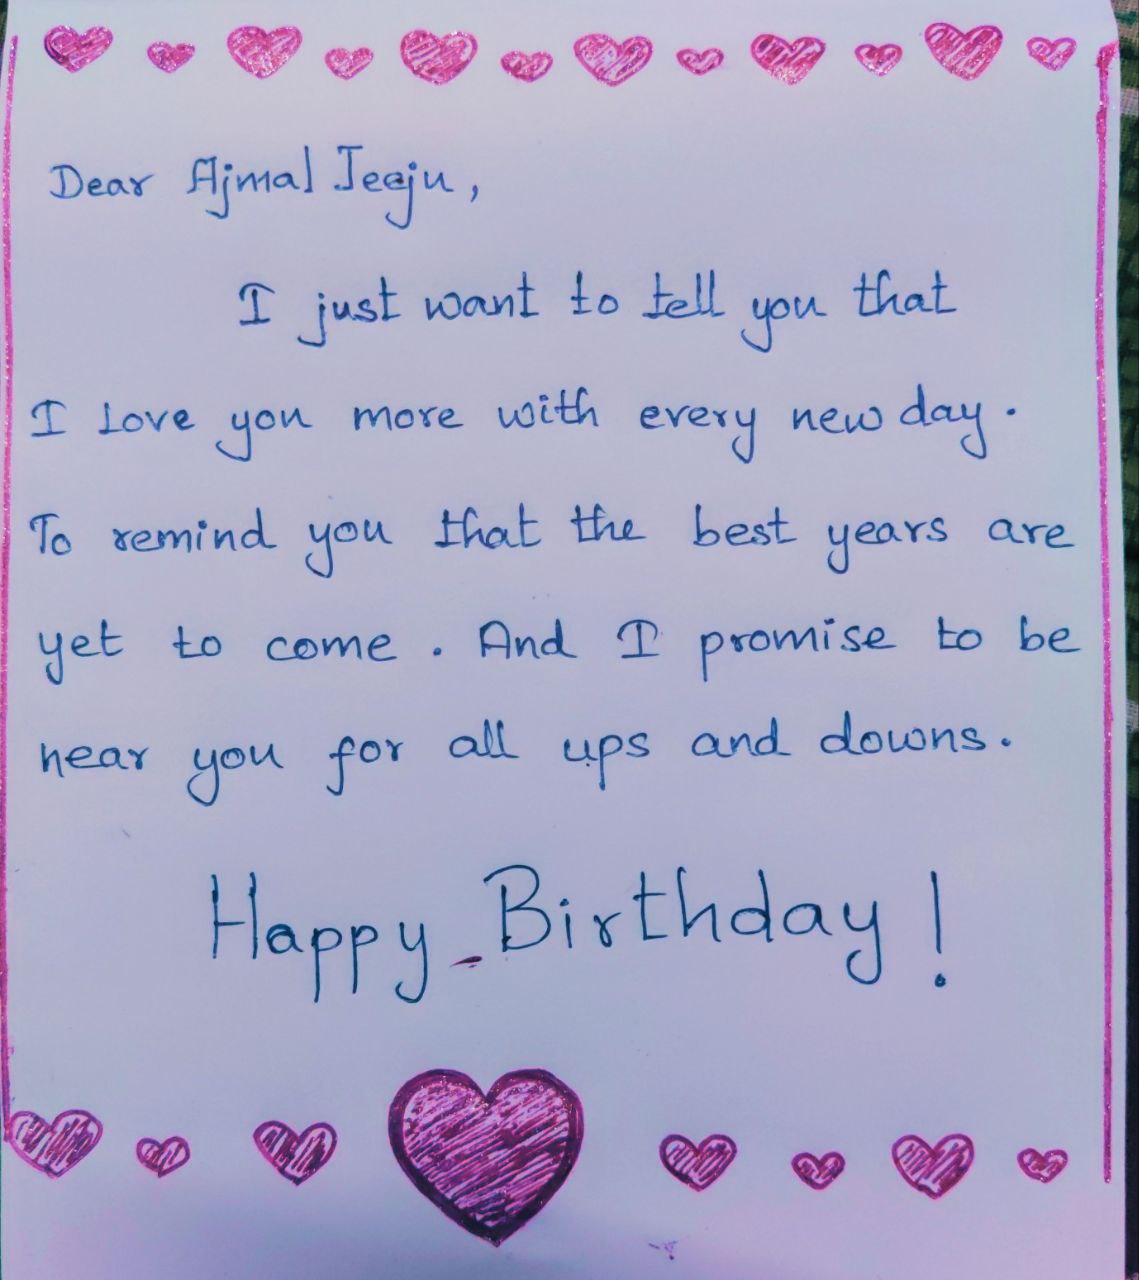 Dear Ajmal Jeeju,
I just want to tell you that
I Love you more with every new day.
To remind you that the best years are
yet to come. And I promise to be
near you for all ups and downs.
Happy Birthday!